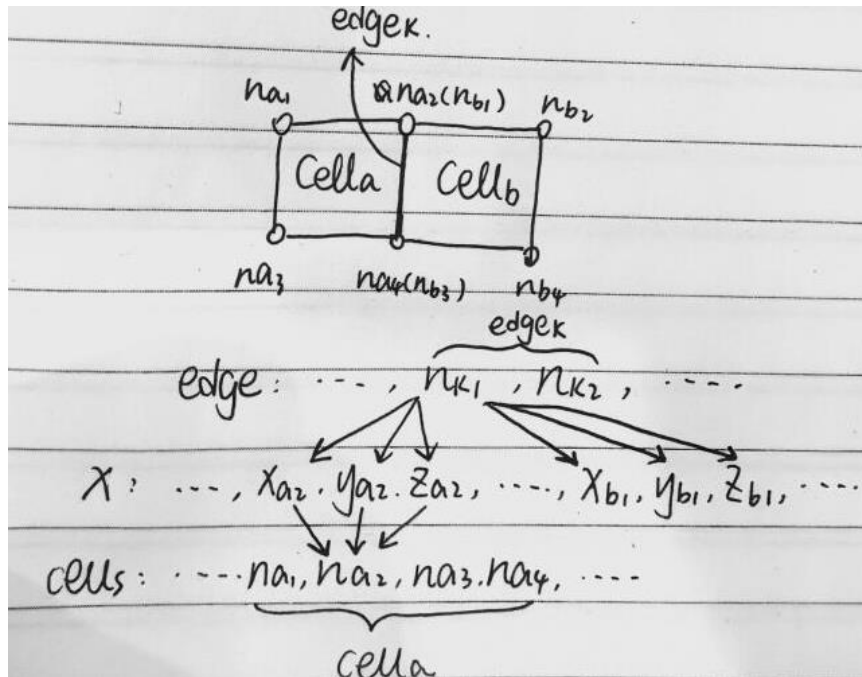 edgeK.
na1 na2(nb1) nb2
Cella Cellb
na3 na4(nb3) nb4
edgeK
edge: ····, nK1, nK2, ·····
X: ····, xa2, ya2, za2, ····, xb1, yb1, zb1, ·····
cells: ·····na1, na2, na3, na4, ····
cella